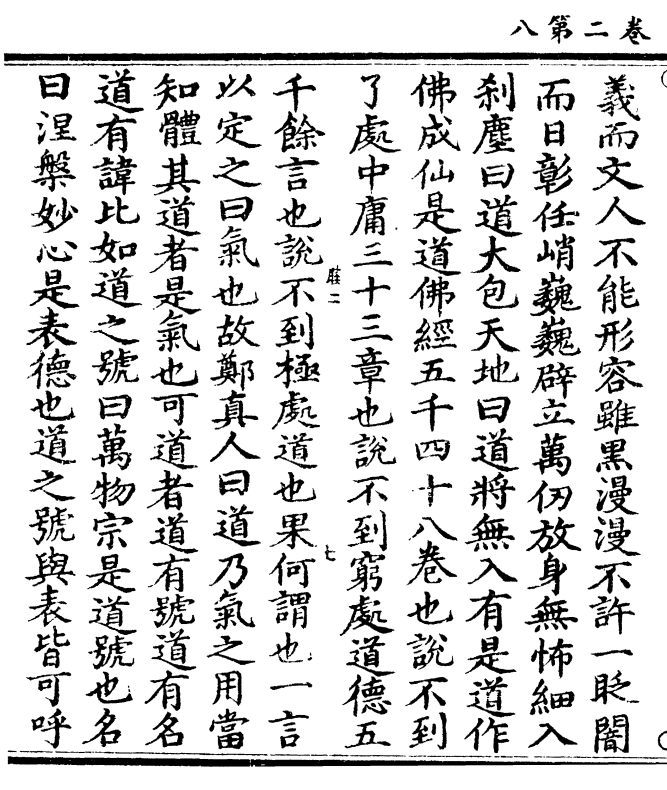 卷二第八
義而文人不能形容雖黑漫漫不許一眨闇
而日彰任峭巍巍辟立萬仞放身無怖細入
刹塵曰道大包天地曰道將無入有是道作
佛成仙是道佛經五千四十八卷也說不到
了處中庸三十三章也說不到窮處道德五
二 七
千餘言也說不到極處道也果何謂也一言
以定之曰氣也故鄭真人曰道乃氣之用當
知體其道者是氣也可道者道有號道有名
道有諱比如道之號曰萬物宗是道號也名
曰涅槃妙心是表德也道之號與表皆可呼